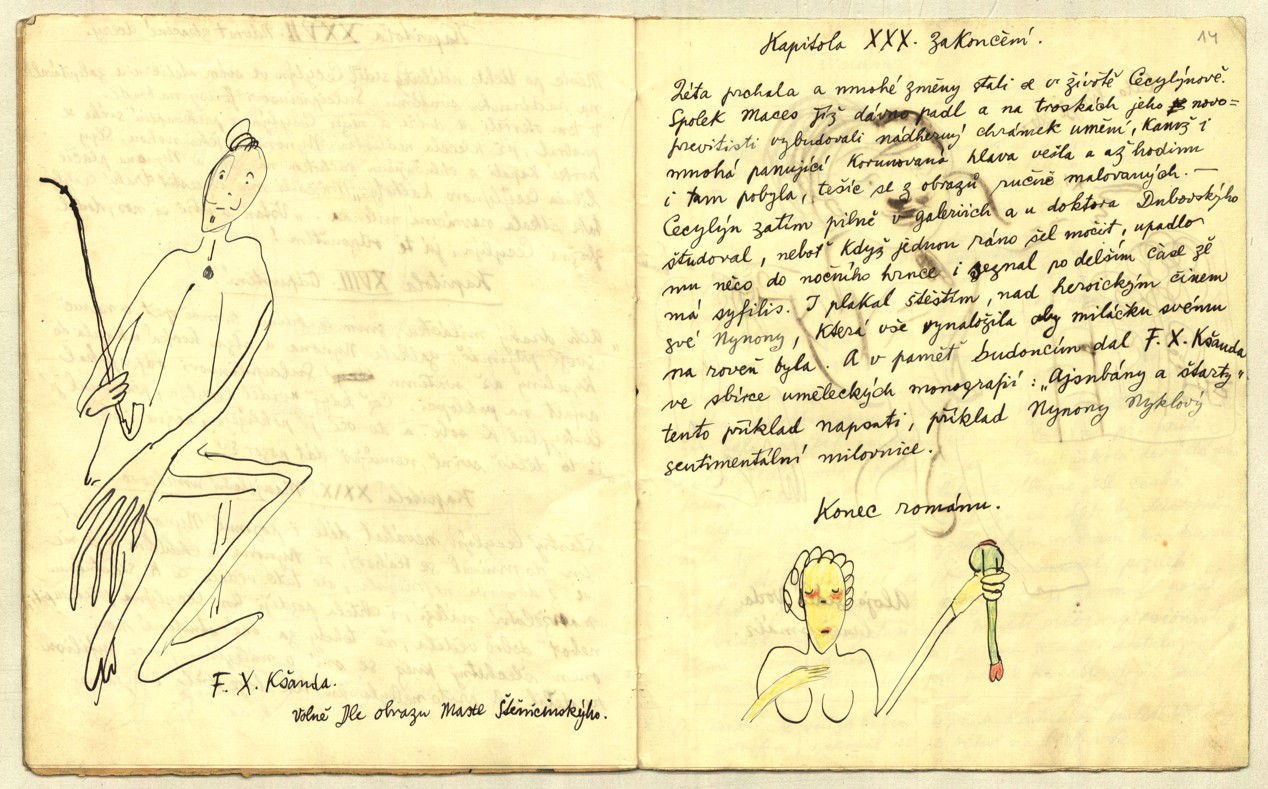 F. X. Kšanda.
Volně dle obrazu Maxe Štěničinskýho.
14
Kapitola XXX. Zakončení.
Léta prchala a mnohé změny stali se v životě Cecylýnově.
Spolek Maces již dávno padl a na troskách jeho novo=
prevítisti vybudovali nádherný chrámek umění, kamž i
mnohá panující korunovaná hlava vešla a až hodinu
i tam pobyla, tešíc se z obrazů ručně malovaných. —
Cecylýn zatím pilně v galeriích a u doktora Dubovskýho
študoval, neboť když jednou ráno šel močit, upadlo
mu něco do nočního hrnce i seznal po delším čase že
má syfilis. I plakal štěstím, nad heroickým činem
své Nynony, která vše vynaložila aby miláčku svému
na roveň byla. A v paměť budoucím dal F. X. Kšanda
ve sbírce uměleckých monografií: „Ajsnbány a štarty“
tento příklad napsati, příklad Nynony Nyklový
sentimentální milovnice.
Konec románu.